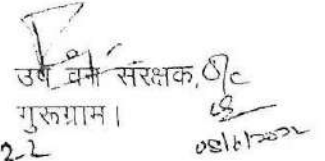 उप वन संरक्षक, O/c
गुरूग्राम।
08/6/2022